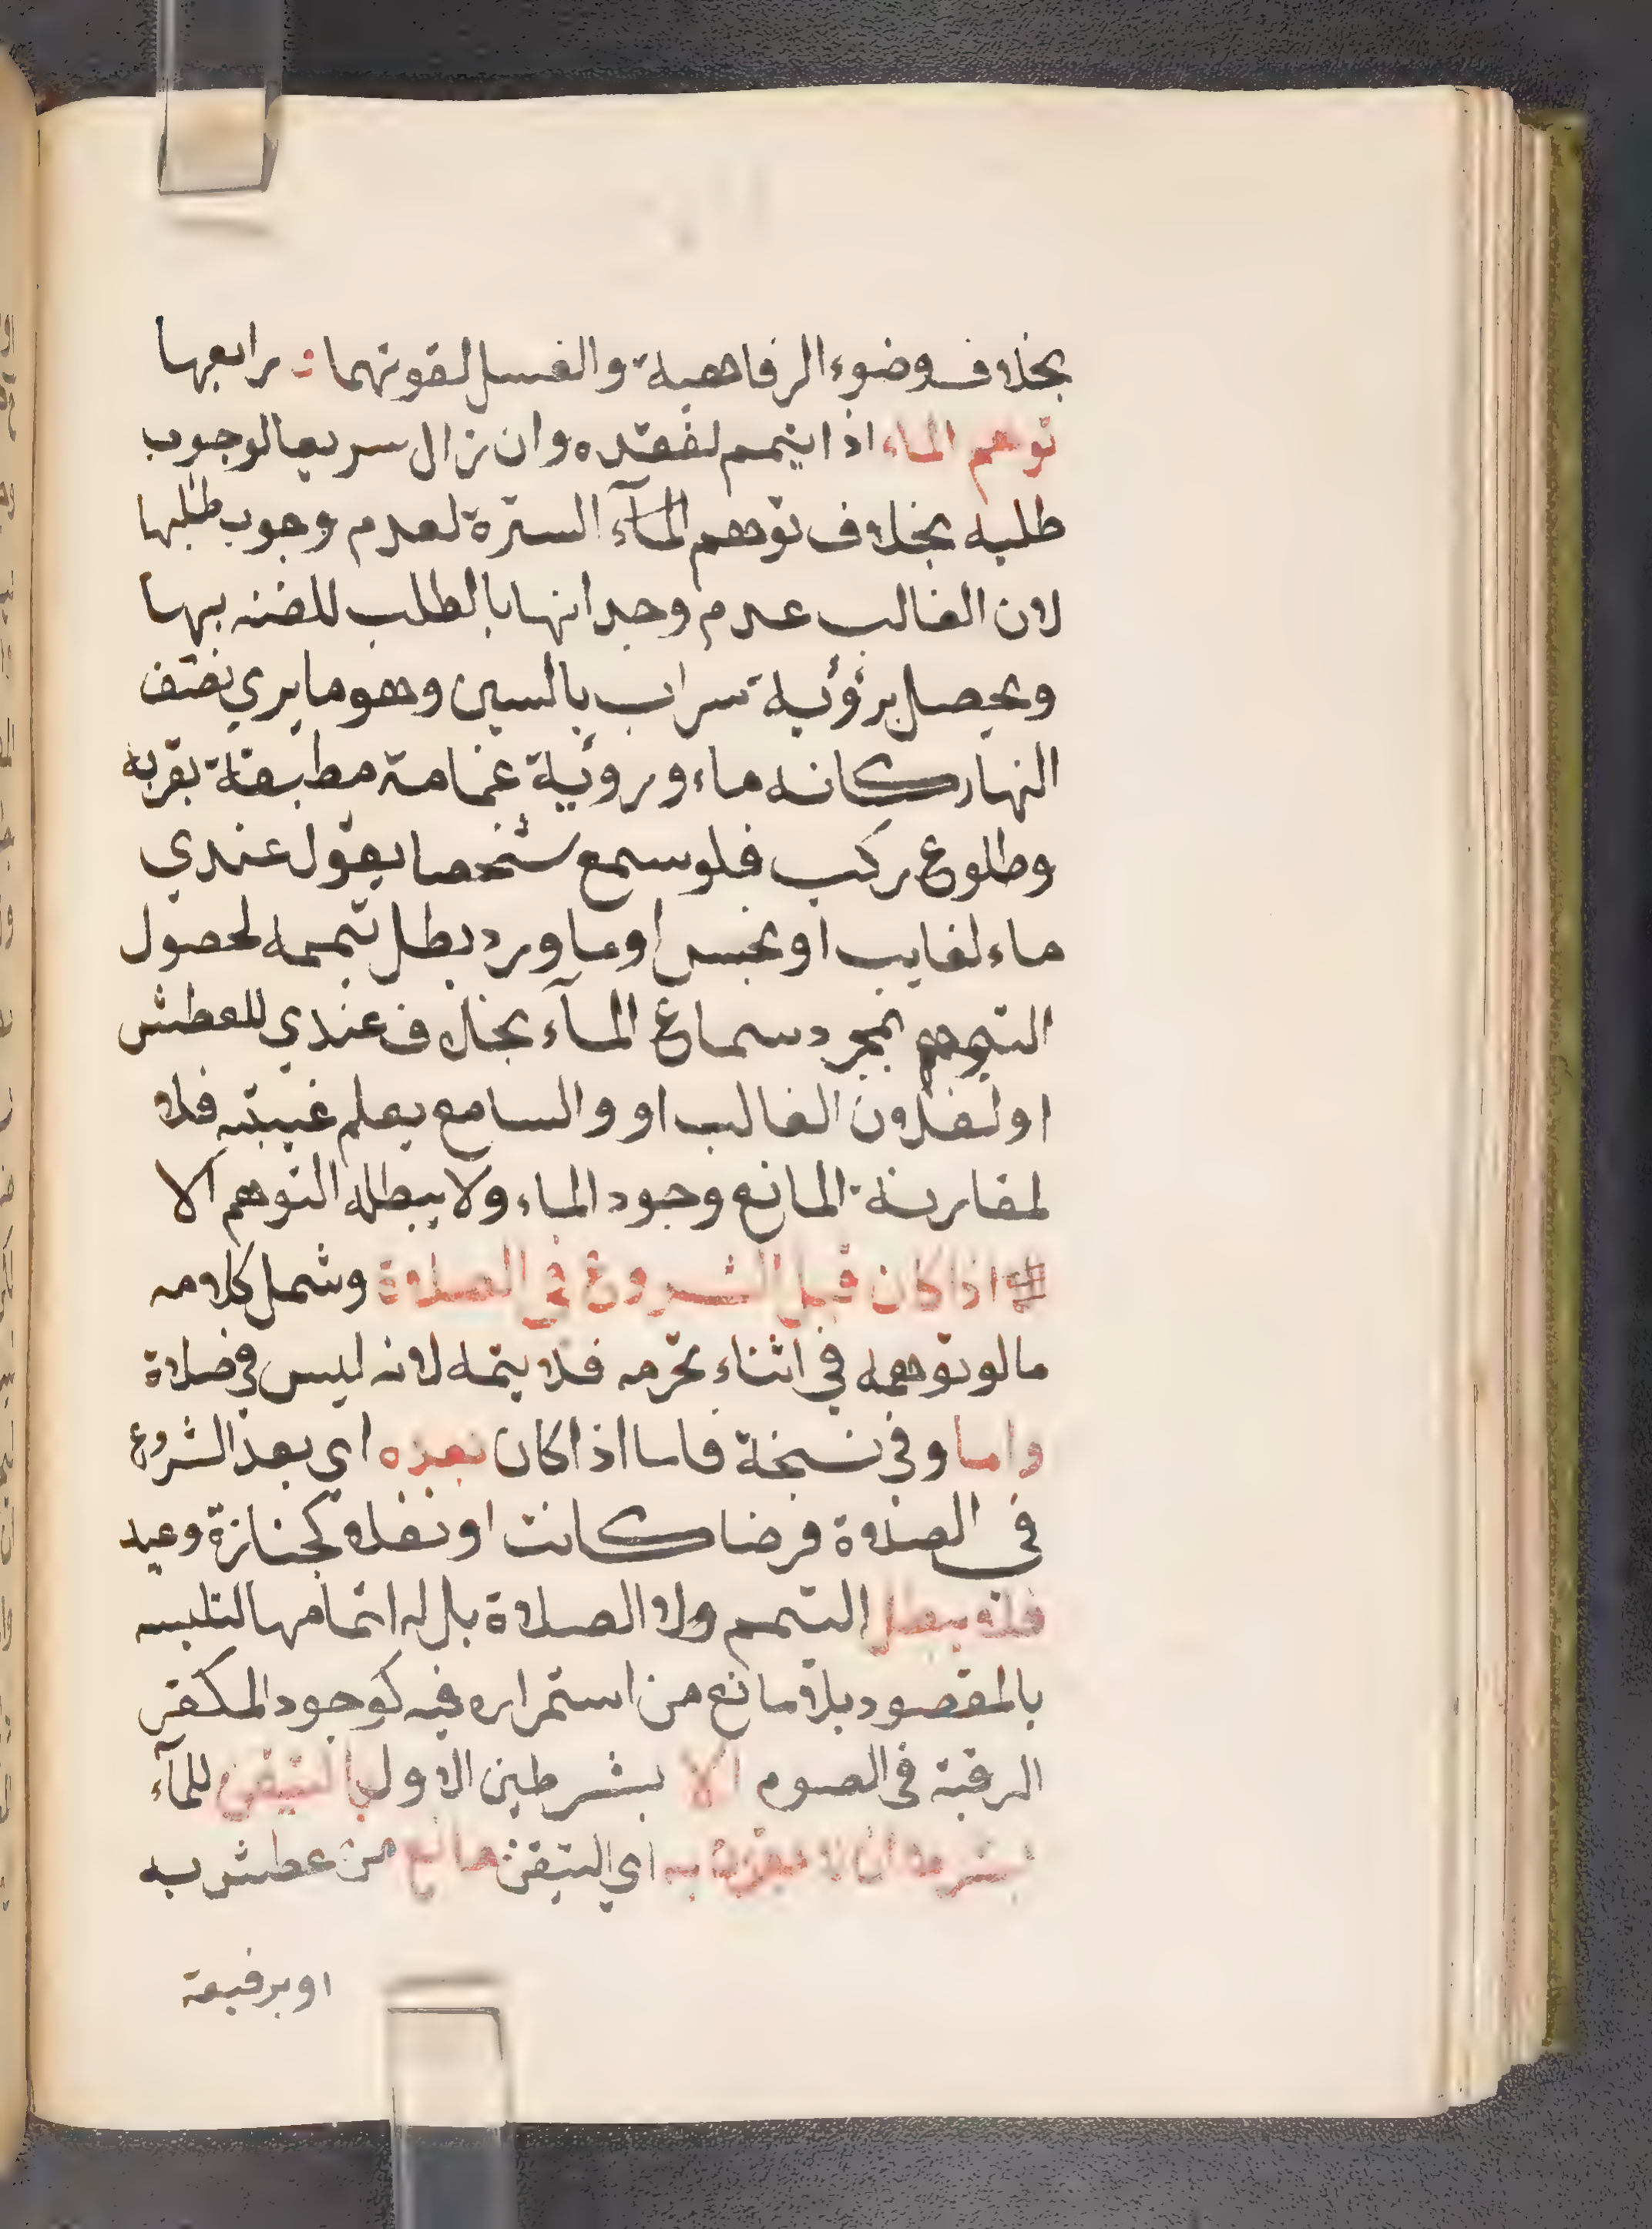 بخلاف وضوء الرفاهية والغسل لقوتهما ؛ رابعها
توهم الماء اذا تيمم لفقده وان زال سريعا لوجوب
طلبه بخلاف توهم المآء السترة لعدم وجوب طلبها
لان الغالب عدم وجدانها بالطلب للضنه بها
ويحصل برؤية سراب بالسين وهو ما يري نصف
النهار كانه ماء وبروئية غمامة مطبقة بقربه
وطلوع ركب فلو سمع شخصا يقول عندي
ماء لغايب او نجس او ما ورد بطل تيممه لحصول
التوهم بمجرد سماع المآء بخلاف عندي للعطش
او لفلان الغالب او والسامع يعلم غيبته فلا
لمقارنة المانع وجود الماء ولا يبطله التوهم الا
اذا كان قبل الشروع في الصلاة وشمل كلامه
ما لو توهمه في اثناء تحرمه فلا يتمه لانه ليس في صلاة
واما وفي نسخة فاما اذا كان بعده اي بعد الشروع
في الصلاة فرضا كانت او نفلا كجنازة وعيد
فلا يبطل التيمم ولا الصلاة بل له اتمامها لتلبسه
بالمقصود بلا مانع من استمراره فيه كوجود المكفر
الرقبة في الصوم الا بشرطين الاول بالتيقن للمآء
بشرط ان لا يقترن به اي التيقن مانع من عطش به
او برفيعة